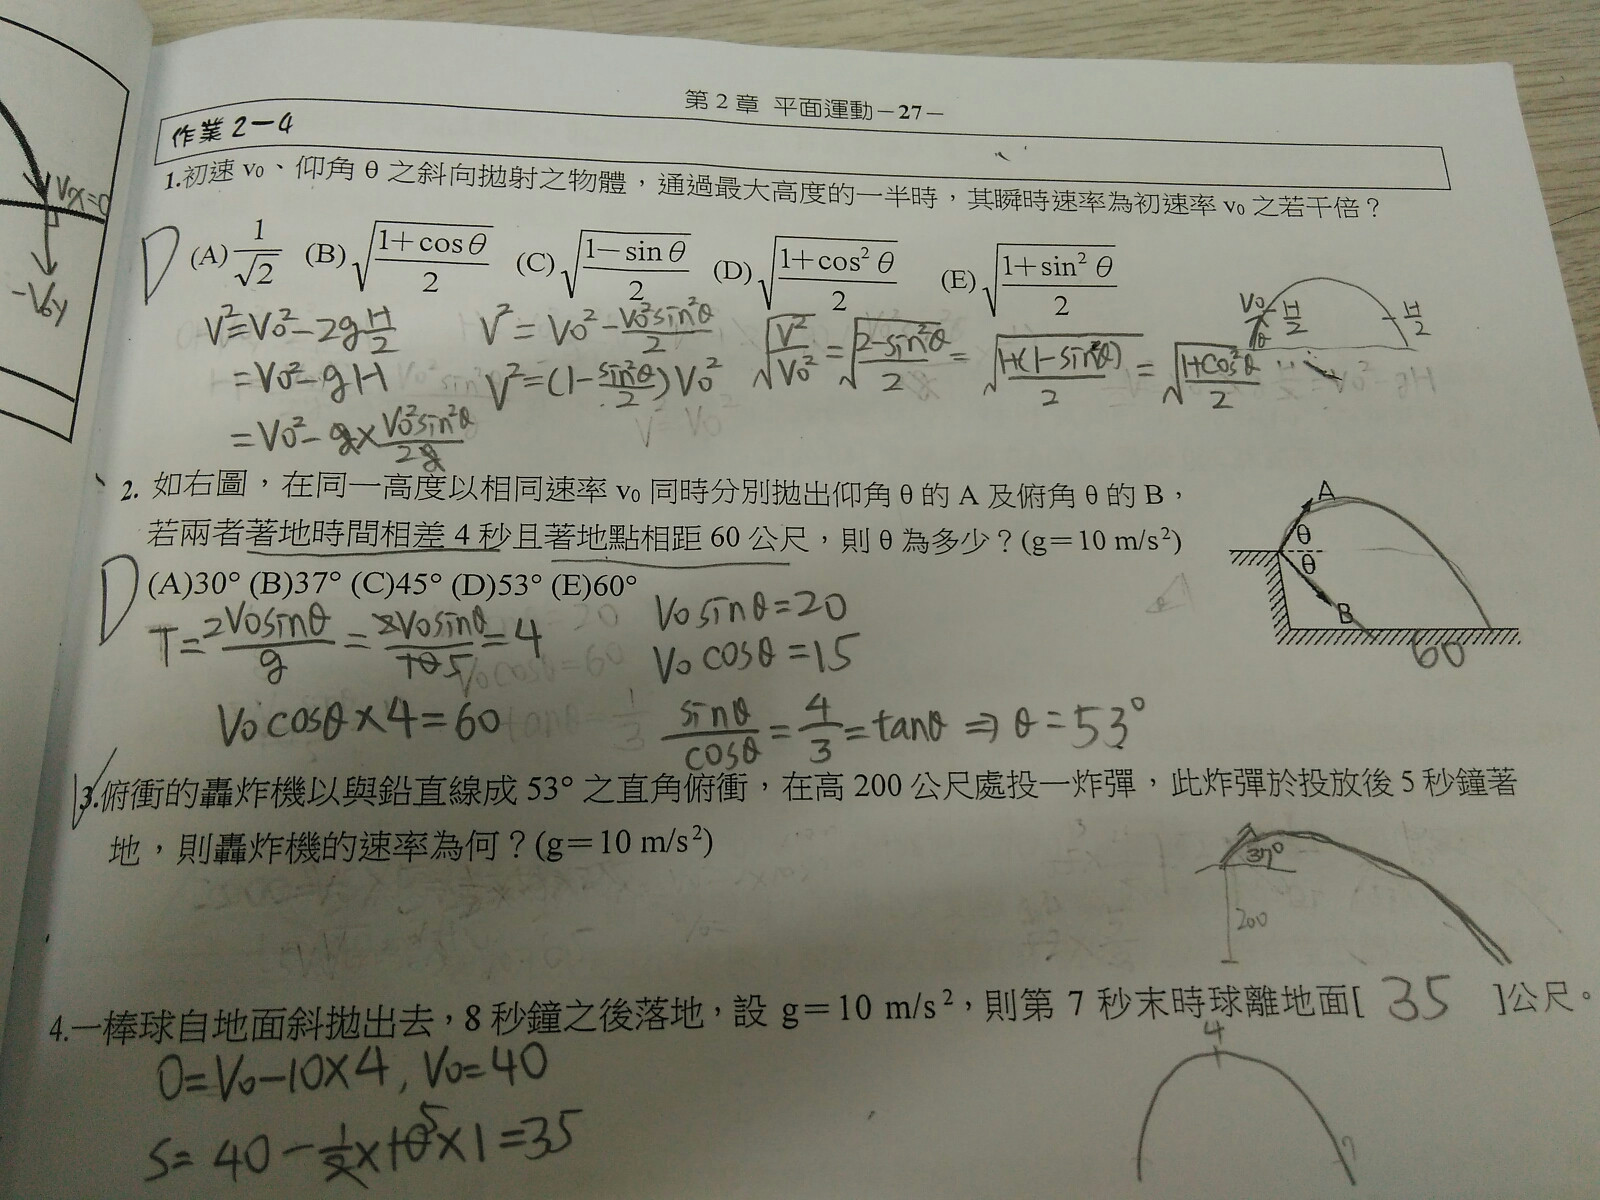 第 2 章 平面運動－27－
作業2－4
1.初速 v₀、仰角 θ 之斜向拋射之物體，通過最大高度的一半時，其瞬時速率為初速率 v₀ 之若干倍？
D (A) 1/√2 (B) √((1+cos θ)/2) (C) √((1−sin θ)/2) (D) √((1+cos² θ)/2) (E) √((1+sin² θ)/2)
V²=V₀²−2g H/2 V²=V₀²−V₀²sin²θ/2 √(V²/V₀²)=√((2−sin²θ)/2)=√((1+(1−sin²θ))/2)=√((1+cos²θ)/2)
=V₀²−gH V²=(1−sin²θ/2)V₀²
=V₀²−g×V₀²sin²θ/2g
V₀ θ H/2 H/2
Vx=0
−V₀y
2. 如右圖，在同一高度以相同速率 v₀ 同時分別拋出仰角 θ 的 A 及俯角 θ 的 B，
若兩者著地時間相差 4 秒且著地點相距 60 公尺，則 θ 為多少？(g＝10 m/s²)
D (A)30° (B)37° (C)45° (D)53° (E)60°
A θ θ B 60
T=2V₀sinθ/g=2V₀sinθ/10 5=4 V₀sinθ=20
V₀cosθ=15
V₀cosθ×4=60 sinθ/cosθ=4/3=tanθ⇒θ=53°
3.俯衝的轟炸機以與鉛直線成 53° 之直角俯衝，在高 200 公尺處投一炸彈，此炸彈於投放後 5 秒鐘著
地，則轟炸機的速率為何？(g＝10 m/s²)
37°
200
4.一棒球自地面斜拋出去，8 秒鐘之後落地，設 g＝10 m/s²，則第 7 秒末時球離地面[ 35 ]公尺。
0=V₀−10×4, V₀=40
S=40−1/2×10 5×1=35
4
7